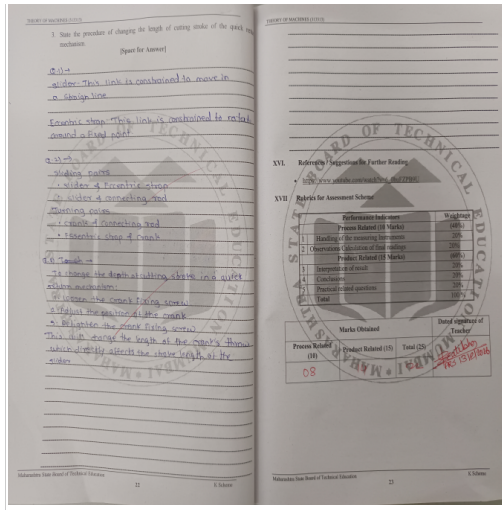 THEORY OF MACHINES (313313)
3. State the procedure of changing the length of cutting stroke of the quick return
mechanism.
[Space for Answer]
Q.1) →
slider - This link is constrained to move in
a straign line
Eccentric strap - This link is constrained to rotate
around a fixed point
Q.2) →
sliding pairs
• slider & Eccentric strap
slider & connecting rod
Turning pairs
• crank & connecting rod
• Essentric strap & crank
To change the depth of cutting stroke in a quick
return mechanism:
1. Loosen the crank fixing screw
2. Adjust the position of the crank
3. Retighten the crank fixing screw
This will change the length of the crank's throw
which directly affects the stroke length of the
slider
Maharashtra State Board of Technical Education
22
K Scheme
THEORY OF MACHINES (313313)
XVI. References / Suggestions for Further Reading
XVII Rubrics for Assessment Scheme
Performance Indicators Weightage
Process Related (10 Marks) (40%)
1 Handling of the measuring Instruments 20%
2 Observations Calculation of final readings 20%
Product Related (15 Marks) (60%)
3 Interpretation of result 20%
4 Conclusions 20%
5 Practical related questions 20%
Total 100%
Marks Obtained Dated signature of Teacher
Process Related (10) Product Related (15) Total (25)
08
Maharashtra State Board of Technical Education
23
K Scheme
MAHARASHTRA STATE BOARD OF TECHNICAL EDUCATION
MUMBAI